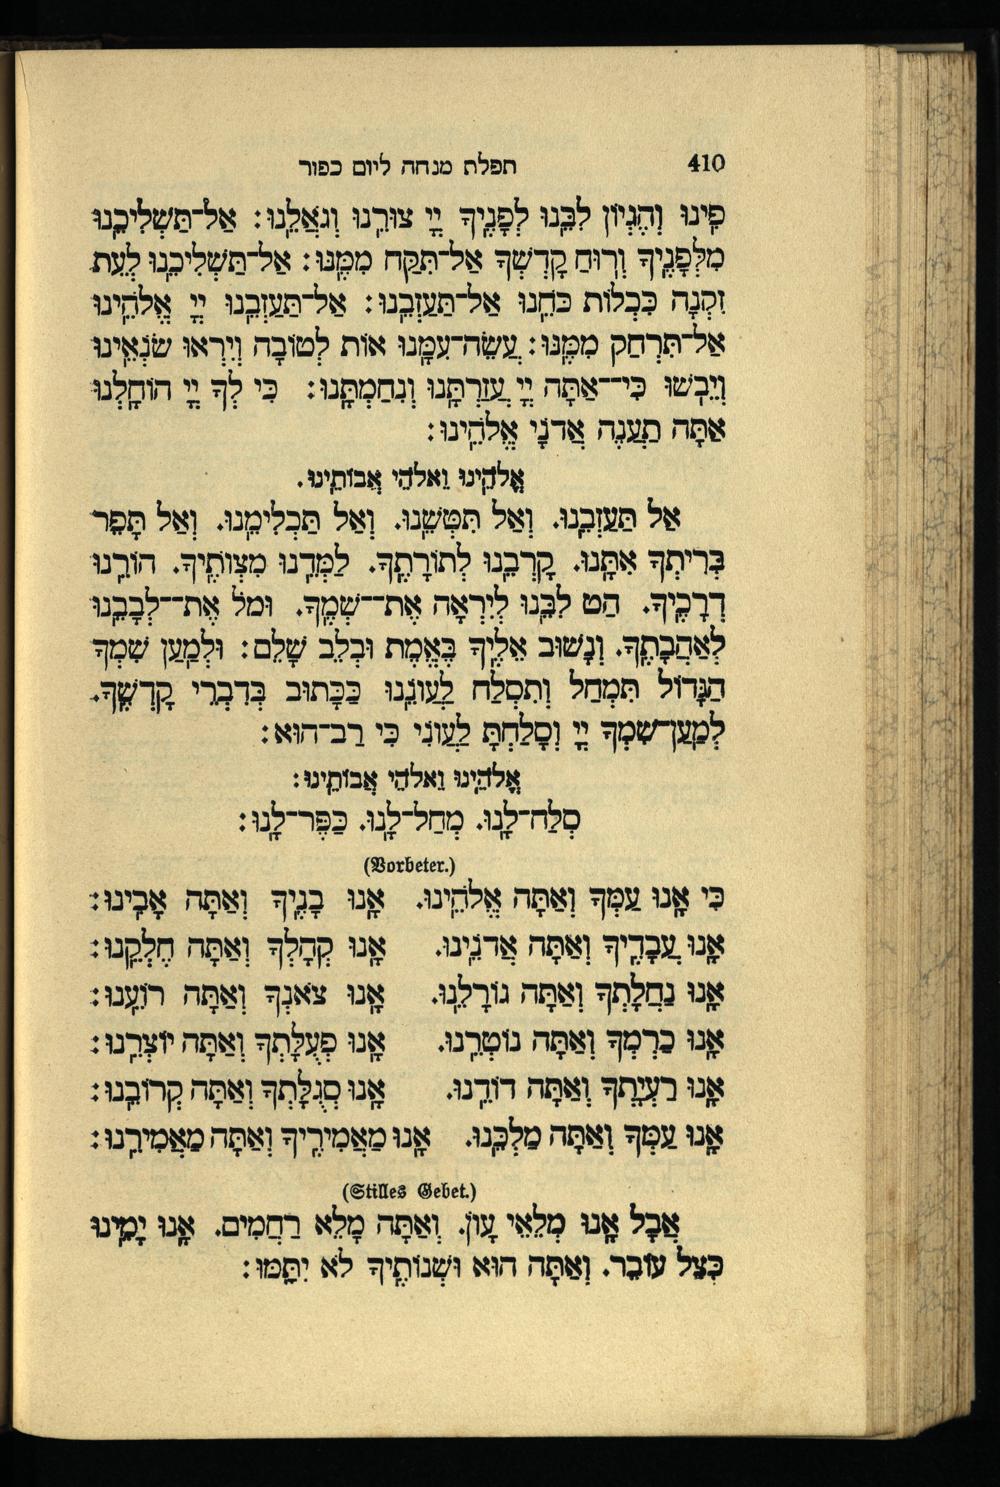 410 תפלת מנחה ליום כפור
פִינוּ וְהֶגְיוֹן לִבֵּנוּ לְפָנֶיךָ יְיָ צוּרֵנוּ וְגֹאֲלֵנוּ: אַל־תַּשְׁלִיכֵנוּ
מִלְּפָנֶיךָ וְרוּחַ קָדְשְׁךָ אַל־תִּקַּח מִמֶּנּוּ: אַל־תַּשְׁלִיכֵנוּ לְעֵת
זִקְנָה כִּכְלוֹת כֹּחֵנוּ אַל־תַּעַזְבֵנוּ: אַל־תַּעַזְבֵנוּ יְיָ אֱלֹהֵינוּ
אַל־תִּרְחַק מִמֶּנּוּ: עֲשֵׂה־עִמָּנוּ אוֹת לְטוֹבָה וְיִרְאוּ שׂנְאֵינוּ
וְיֵבשׁוּ כִּי־־אַתָּה יְיָ עֲזַרְתָּנוּ וְנִחַמְתָּנוּ: כִּי לְךָ יְיָ הוֹחָלְנוּ
אַתָּה תַעֲנֶה אֲדֹנָי אֱלֹהֵינוּ:
אֱלֹהֵינוּ וֵאלֹהֵי אֲבוֹתֵינוּ.
אַל תַּעַזְבֵנוּ. וְאַל תִּטְּשֵׁנוּ. וְאַל תַּכְלִימֵנוּ. וְאַל תָּפֵר
בְּרִיתְךָ אִתָּנוּ. קָרְבֵנוּ לְתוֹרָתֶךָ. לַמְּדֵנוּ מִצְוֹתֶיךָ. הוֹרֵנוּ
דְרָכֶיךָ. הַט לִבֵּנוּ לְיִרְאָה אֶת־־שְׁמֶךָ. וּמֹל אֶת־־לְבָבֵנוּ
לְאַהֲבָתֶךָ. וְנָשׁוּב אֵלֶיךָ בֶּאֱמֶת וּבְלֵב שָׁלֵם: וּלְמַעַן שִׁמְךָ
הַגָּדוֹל תִּמְחַל וְתִסְלַח לַעֲוֹנֵנוּ כַּכָּתוּב בְּדִבְרֵי קָדְשֶׁךָ.
לְמַעַן־שִׁמְךָ יְיָ וְסָלַחְתָּ לַעֲוֹנִי כִּי רַב־הוּא:
אֱלֹהֵינוּ וֵאלֹהֵי אֲבוֹתֵינוּ:
סְלַח־לָנוּ. מְחַל־לָנוּ. כַּפֶּר־לָנוּ:
(Vorbeter.)
כִּי אָנוּ עַמְּךָ וְאַתָּה אֱלֹהֵינוּ. אָנוּ בָנֶיךָ וְאַתָּה אָבִינוּ:
אָנוּ עֲבָדֶיךָ וְאַתָּה אֲדֹנֵינוּ. אָנוּ קְהָלְךָ וְאַתָּה חֶלְקֵנוּ:
אָנוּ נַחֲלָתְךָ וְאַתָּה גוֹרָלֵנוּ. אָנוּ צֹאנְךָ וְאַתָּה רוֹעֵנוּ:
אָנוּ כַרְמְךָ וְאַתָּה נוֹטְרֵנוּ. אָנוּ פְעֻלָּתְךָ וְאַתָּה יוֹצְרֵנוּ:
אָנוּ רַעְיָתְךָ וְאַתָּה דוֹדֵנוּ. אָנוּ סְגֻלָּתְךָ וְאַתָּה קְרוֹבֵנוּ:
אָנוּ עַמְּךָ וְאַתָּה מַלְכֵּנוּ. אָנוּ מַאֲמִירֶיךָ וְאַתָּה מַאֲמִירֵנוּ:
(Stilles Gebet.)
אֲבָל אָנוּ מְלֵאֵי עָוֹן. וְאַתָּה מָלֵא רַחֲמִים. אָנוּ יָמֵינוּ
כְּצֵל עוֹבֵר. וְאַתָּה הוּא וּשְׁנוֹתֶיךָ לֹא יִתָּמּוּ: